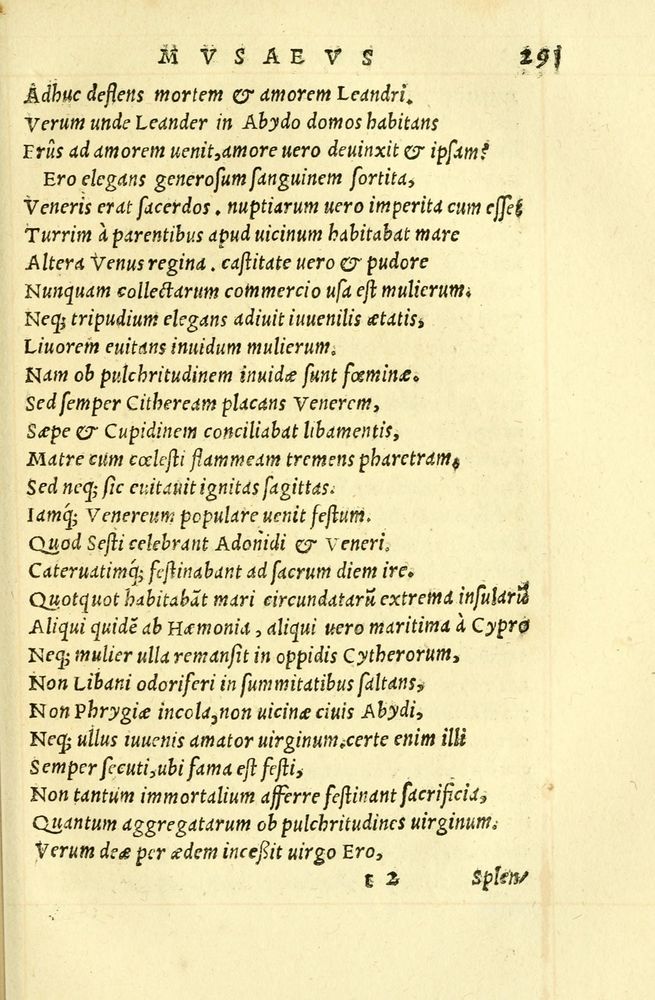 MVSAEVS 291
Adhuc deflens mortem & amorem Leandri.
Verum unde Leander in Abydo domos habitans
Erûs ad amorem uenit, amore uero deuinxit & ipsam?
Ero elegans generosum sanguinem sortita,
Veneris erat sacerdos. nuptiarum uero imperita cum esset
Turrim à parentibus apud uicinum habitabat mare
Altera Venus regina. castitate uero & pudore
Nunquam collectarum commercio usa est mulierum.
Neq; tripudium elegans adiuit iuuenilis ætatis,
Liuorem euitans inuidum mulierum.
Nam ob pulchritudinem inuidæ sunt fœminæ.
Sed semper Cithеream placans Venerem,
Sæpe & Cupidinem conciliabat libamentis,
Matre cum cœlesti flammeam tremens pharetram,
Sed neq; sic euitauit ignitas sagittas.
Iamq́; Venereum populare uenit festum.
Quod Sesti celebrant Adonidi & Veneri.
Cateruatimq́; festinabant ad sacrum diem ire.
Quotquot habitabāt mari circundatarū extrema insularū
Aliqui quidē ab Hæmonia, aliqui uero maritima à Cypro
Neq; mulier ulla remansit in oppidis Cytherorum,
Non Libani odoriferi in summitatibus saltans,
Non Phrygiæ incola, non uicinæ ciuis Abydi,
Neq; ullus iuuenis amator uirginum. certe enim illi
Semper secuti, ubi fama est festi,
Non tantum immortalium afferre festinant sacrificia,
Quantum aggregatarum ob pulchritudines uirginum.
Verum deæ per ædem inceßit uirgo Ero,
2 Splen-